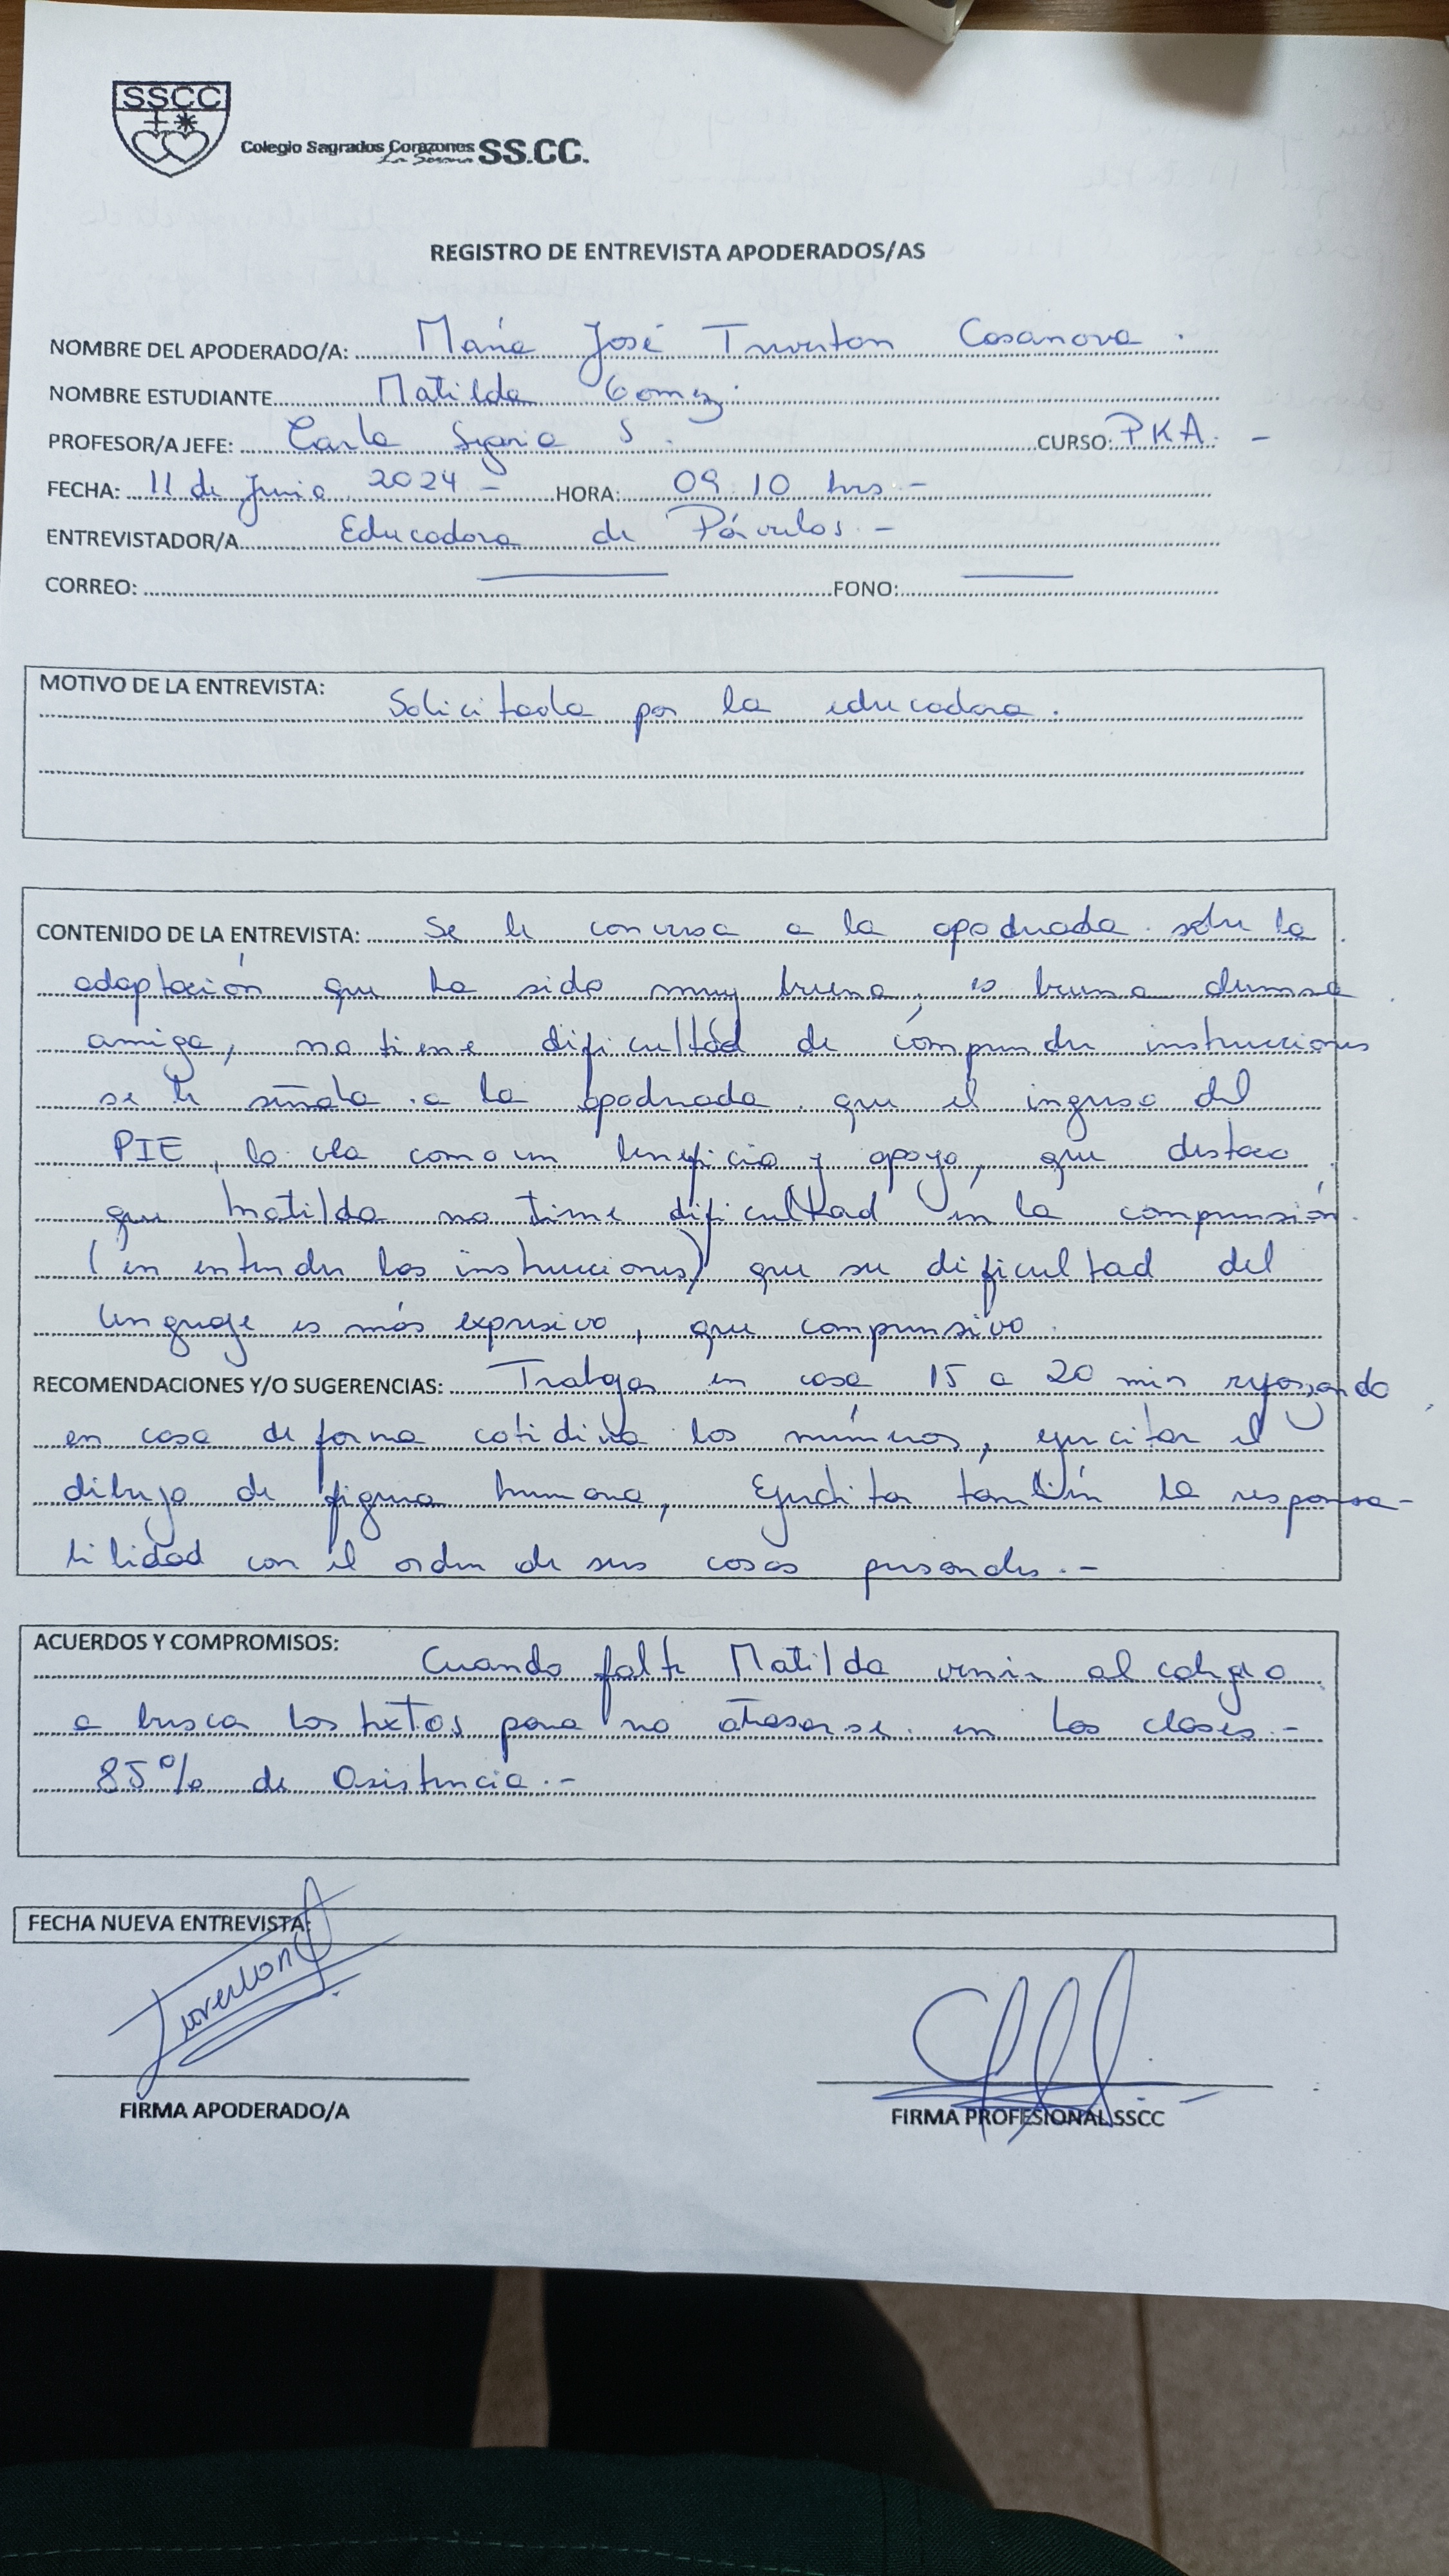 SSCC
Colegio Sagrados Corazones SS.CC.
La Serena
REGISTRO DE ENTREVISTA APODERADOS/AS
NOMBRE DEL APODERADO/A: María José Troverton Casanova.
NOMBRE ESTUDIANTE Matilda Gomez.
PROFESOR/A JEFE: Carla S. CURSO: PKA. -
FECHA: 11 de Junio 2024 - HORA: 09.10 hrs -
ENTREVISTADOR/A Educadora de Párvulos -
CORREO: FONO:
MOTIVO DE LA ENTREVISTA: Solicitada por la educadora.
CONTENIDO DE LA ENTREVISTA: Se le conversa a la apoderada sobre la
adaptación que ha sido muy buena, es buena
amiga, no tiene dificultad de comprender instrucciones
se le señala a la apoderada que el ingreso del
PIE, lo vea como un beneficio y apoyo, que destaco
que Matilda no tiene dificultad en la comprensión
(en entender las instrucciones) que su dificultad del
lenguaje es más expresivo, que comprensivo.
RECOMENDACIONES Y/O SUGERENCIAS: Trabajar en casa 15 a 20 min reforzando
en casa de forma cotidiva los números, ejercitar el
dibujo de figura humana, Ejercitar también la responsa-
bilidad con el orden de sus cosas personales.-
ACUERDOS Y COMPROMISOS: Cuando falte Matilda venir al colegio
a busca los textos para no atrasarse en las clases.-
85% de Asistencia.-
FECHA NUEVA ENTREVISTA:
FIRMA APODERADO/A
FIRMA PROFESIONAL SSCC